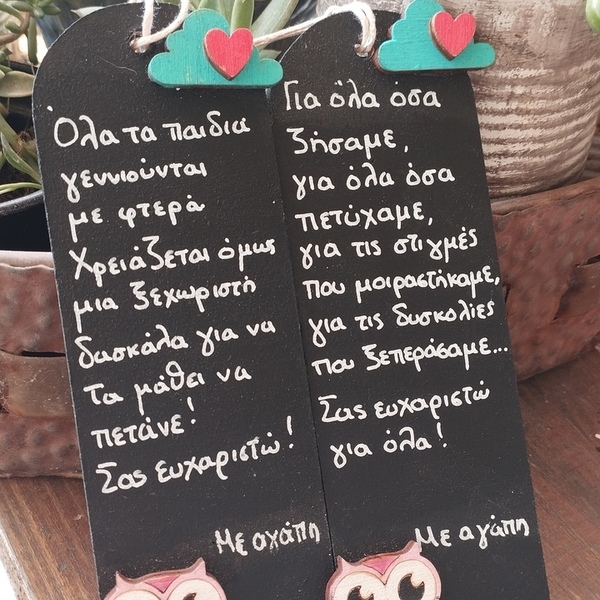 Όλα τα παιδιά
γεννιούνται
με φτερά
Χρειάζεται όμως
μια ξεχωριστή
δασκάλα για να
τα μάθει να
πετάνε!
Σας ευχαριστώ!
Με αγάπη
Για όλα όσα
ζήσαμε,
για όλα όσα
πετύχαμε,
για τις στιγμές
που μοιραστήκαμε,
για τις δυσκολίες
που ξεπεράσαμε...
Σας ευχαριστώ
για όλα!
Με αγάπη